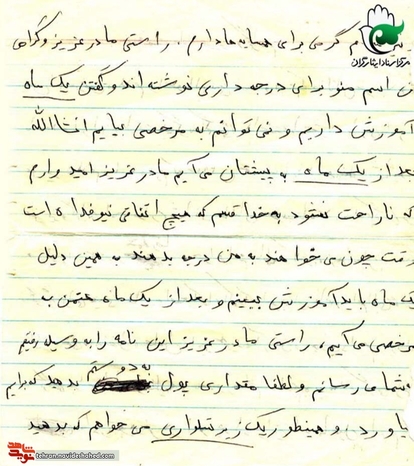 مرکز اسناد ایثارگران
گرمی برای همسایه ها دارم . راستی مادر عزیز و گرامی
اسم منو برای درجه داری نوشته اند و گفتن یک ماه
آموزش داریم و نمی توانم به مرخصی بیایم انشاالله
بعد از یک ماه به پیشتان می آیم مادر عزیز امیدوارم
که ناراحت نشود به خدا قسم که هیچ اتفاقی نیوفتاده است
وقت چون می خواهند به من درجه بدهند به همین دلیل
یک ماه باید آموزش ببینم و بعد از یک ماه حتمن به
مرخصی می آیم ، راستی مادر عزیز این نامه را به وسیله رفیقم
به شما می رسانم و لطفا مقداری پول به دوستم بدهید که برایم
بیاورد . و همینطور یک زیر شلواری می خواهم که بدهید
نوید شاهد
tehran.navideshahed.com